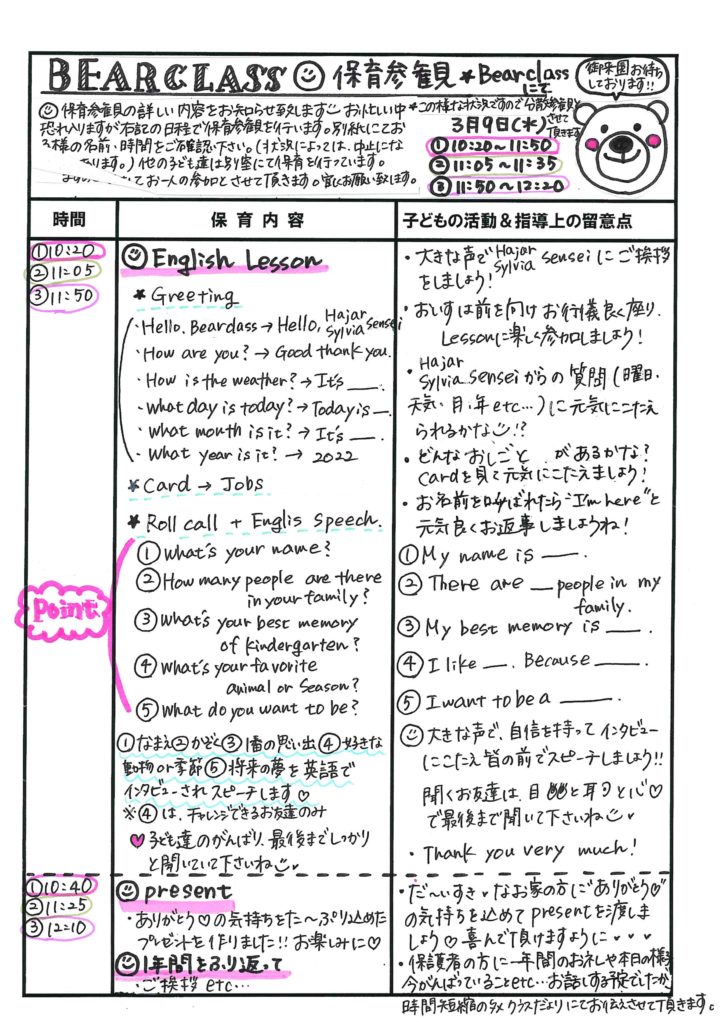 BEARCLASS 保育参観 ★Bearclassにて
御来園お待ちしております!!
保育参観の詳しい内容をお知らせ致します お忙しい中
恐れ入りますが右記の日程で保育参観を行います。別紙にてお
子様の名前・時間をご確認下さい。(状況によっては、中止にな
あります。)他の子ども達は別室にて保育を行っています。
お一人の参加とさせて頂きます。宜しくお願い致します。
★この様な状況ですので分散参観とさせて頂きます
3月9日(水)
① 10:20〜11:50
② 11:05〜11:35
③ 11:50〜12:20
時間
保育内容
子どもの活動&指導上の留意点
①10:20
②11:05
③11:50
English Lesson
★Greeting
・Hello, Bearclass → Hello, Hajar Sylvia sensei
・How are you? → Good thank you.
・How is the weather? → It's ___.
・What day is today? → Today is _.
・What month is it? → It's ___.
・What year is it? → 2022
★Card → Jobs
★Roll call + Englis Speech.
Point
① What's your name?
② How many people are there
in your family?
③ What's your best memory
of kindergarten?
④ What's your favorite
animal or season?
⑤ What do you want to be?
①なまえ②かぞく③1番の思い出④好きな
動物or季節⑤将来の夢を英語で
インタビューされスピーチします♡
※④は、チャレンジできるお友達のみ
♥子ども達のがんばり、最後までしっかり
と聞いていて下さいね
・大きな声で Hajar Sylvia sensei にご挨拶
をしましょう!
・おいすは前を向けお行儀良く座り、
Lessonに楽しく参加しましょう!
・Hajar Sylvia senseiからの質問(曜日、
天気、月、年etc…)に元気にこたえ
られるかな!?
・どんなおしごとがあるかな?
Cardを見て元気にこたえましょう!
・お名前を呼ばれたら"I'm here"と
元気良くお返事しましょうね!
① My name is ___.
② There are _ people in my
family.
③ My best memory is ___.
④ I like __. Because ___.
⑤ I want to be a ____.
大きな声で、自信を持ってインタビュー
にこたえ皆の前でスピーチしましょう!!
聞くお友達は、目と耳と心♡
で最後まで聞いて下さいね
・Thank you very much!
①10:40
②11:25
③12:10
present
・ありがとう♡の気持ちをた〜ぷり込めた
プレゼントを作りました!!お楽しみに♡
1年間をふり返って
・ご挨拶etc…
・だ〜いすき♥なお家の方に"ありがとう♡"
の気持ちを込めてpresentを渡しま
しょう♡喜んで頂けますように♥♥♥
・保護者の方に一年間のお礼や本日の様子
今がんばっていることetc…お話しする予定でしたが
時間短縮のためクラスだよりにてお伝えさせて頂きます。